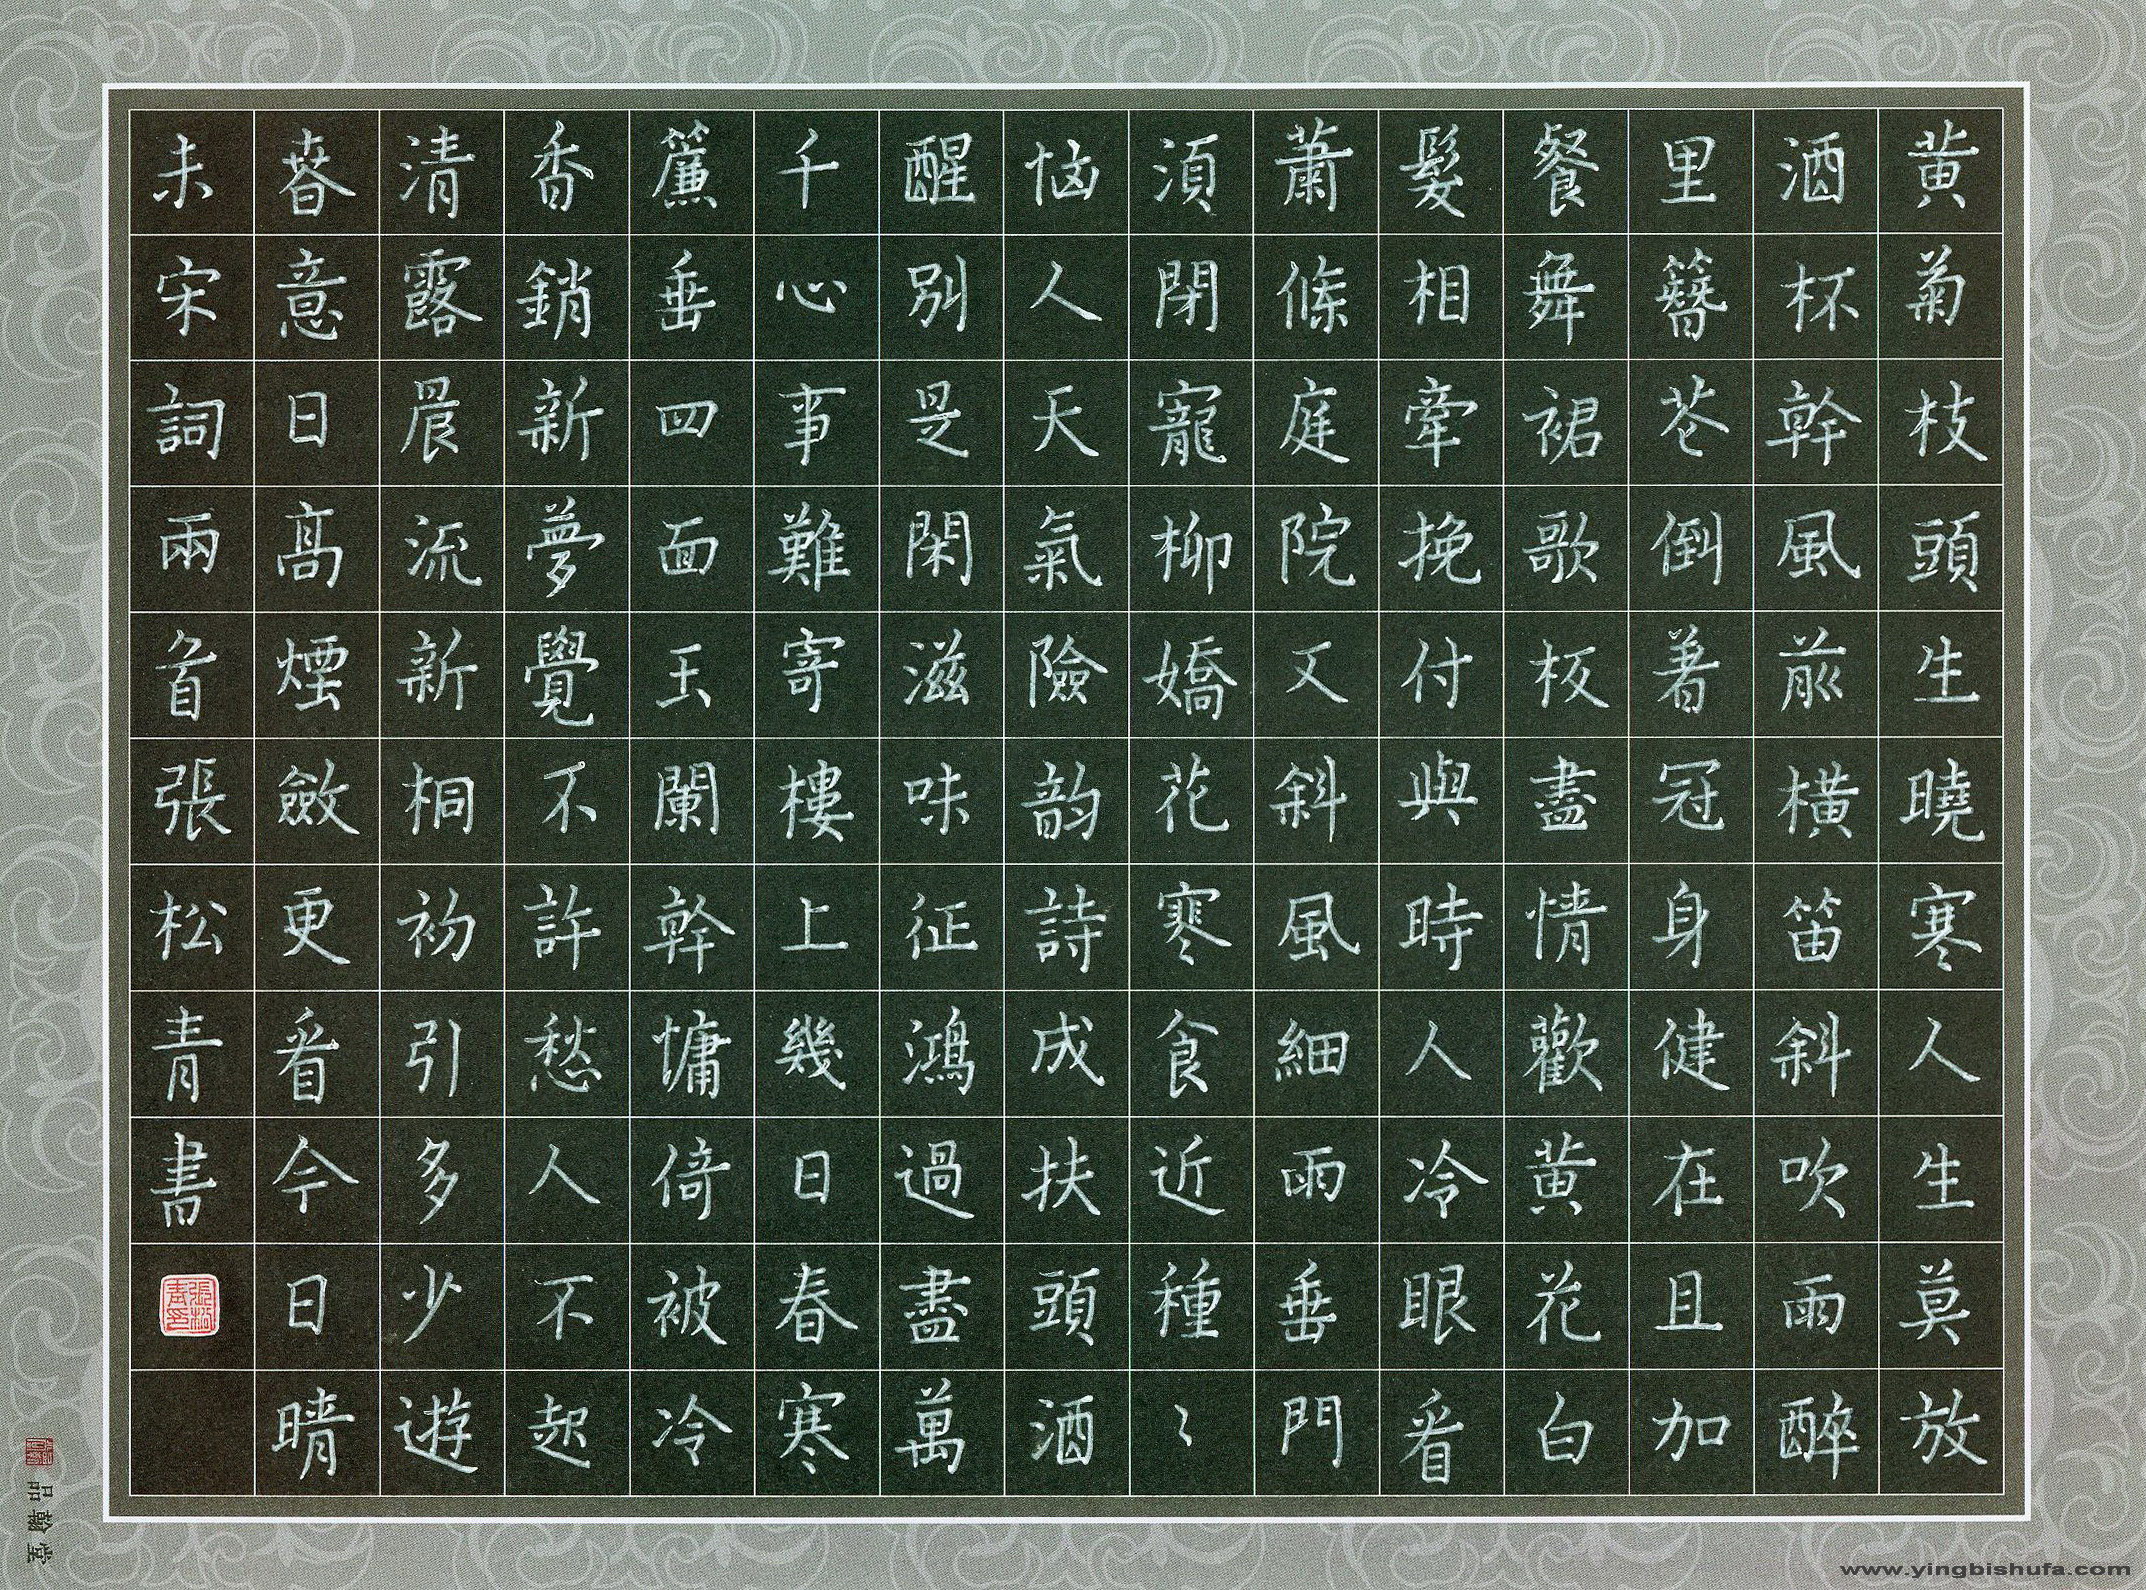 黄菊枝頭生曉寒人生莫放
酒杯幹風前橫笛斜吹雨醉
里簪花倒著冠身健在且加
餐舞裙歌板盡情歡黄花白
髮相牽挽付與時人冷眼看
蕭條庭院又斜風細雨垂門
須閉寵柳嬌花寒食近種〻
恼人天氣險韵詩成扶頭酒
醒別是閑滋味征鴻過盡萬
千心事難寄樓上幾日春寒
簾垂四面玉闌幹慵倚被冷
香銷新夢覺不許愁人不起
清露晨流新桐初引多少遊
春意日高煙斂更看今日晴
未宋詞兩首張松青書
張松青印
品翰堂
www.yingbishufa.com